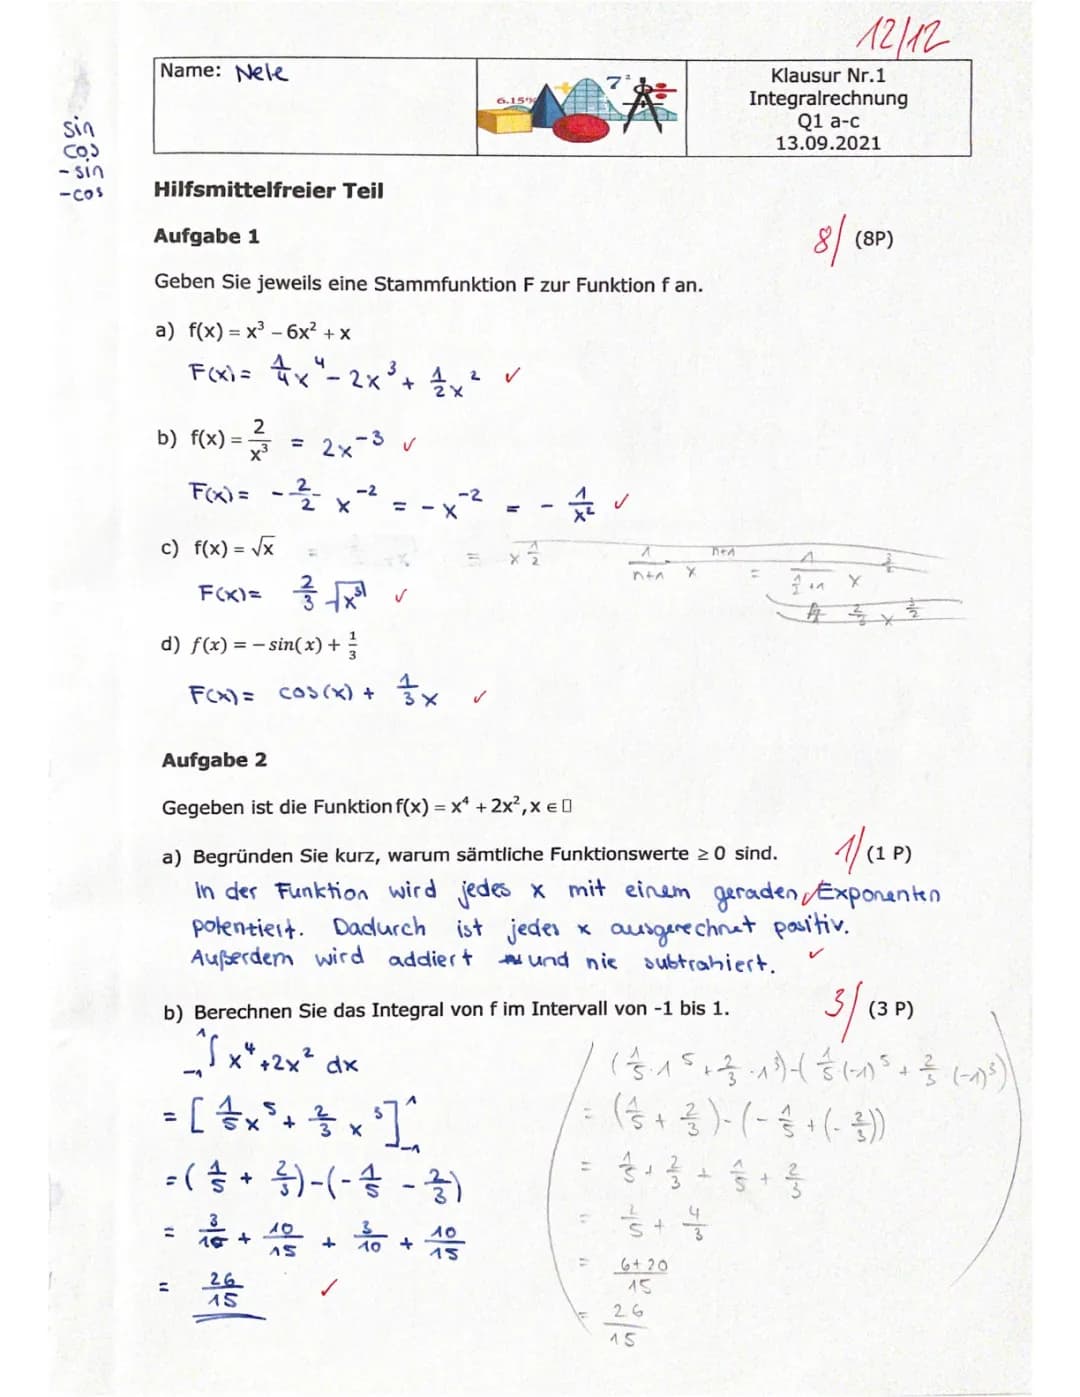 12/12
Name: Nele
6.15%
7²
Klausur Nr.1
Integralrechnung
Q1 a-c
13.09.2021
sin
cos
-sin
-cos
Hilfsmittelfreier Teil
Aufgabe 1
8/ (8P)
Geben Sie jeweils eine Stammfunktion F zur Funktion f an.
a) f(x) = x³ – 6x² + x
F(x) = 1/4 x⁴ - 2x³ + 1/2 x² ✓
b) f(x) = 2/x³ = 2x⁻³ ✓
F(x) = - 2/2 x⁻² = -x⁻² = - 1/x² ✓
c) f(x) = √x = x^(1/2) 1/(n+1) x^(n+1) = 1/(1/2+1) x^(3/2)
F(x) = 2/3 √x³ ✓ 2/3 x^(3/2)
d) f(x) = – sin(x) + 1/3
F(x) = cos(x) + 1/3 x ✓
Aufgabe 2
Gegeben ist die Funktion f(x) = x⁴ + 2x², x ∈ □
a) Begründen Sie kurz, warum sämtliche Funktionswerte ≥ 0 sind. 1/ (1 P)
In der Funktion wird jedes x mit einem geraden Exponenten
potenziert. Dadurch ist jedes x ausgerechnet positiv.
Außerdem wird addiert und nie subtrahiert. ✓
b) Berechnen Sie das Integral von f im Intervall von -1 bis 1. 3/ (3 P)
₋₁∫¹ x⁴ + 2x² dx
= [1/5 x⁵ + 2/3 x³]¹₋₁
= (1/5 + 2/3) - (-1/5 - 2/3)
= 3/10 + 10/15 + 3/10 + 10/15
= 26/15 ✓
(1/5 · 1⁵ + 2/3 · 1³) - (1/5 (-1)⁵ + 2/3 (-1)³)
= (1/5 + 2/3) - (-1/5 + (-2/3))
= 1/5 + 2/3 + 1/5 + 2/3
= 2/5 + 4/3
= 6+20/15
= 26/15